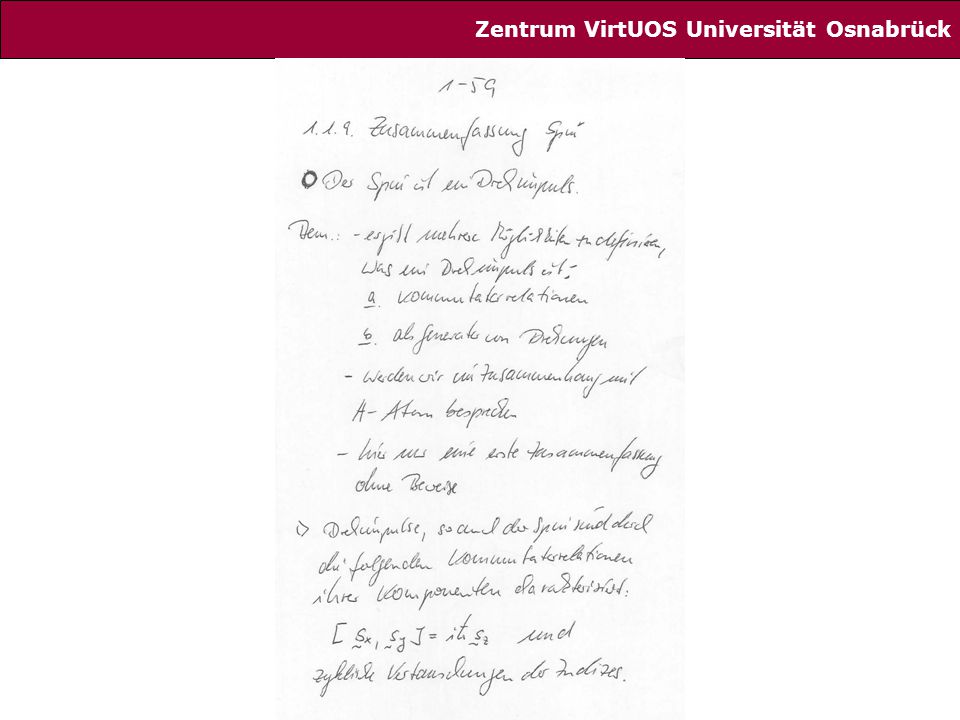 Zentrum VirtUOS Universität Osnabrück
1-59
1.1.9. Zusammenfassung Spin
Der Spin ist ein Drehimpuls.
Bem.: - es gibt mehrere Möglichkeiten zu definieren,
was ein Drehimpuls ist:
a. Kommutatorrelationen
b. als Generator von Drehungen
- werden wir im Zusammenhang mit
H-Atom besprechen
- hier nur eine erste Zusammenfassung
ohne Beweise
▷ Drehimpulse, so auch der Spin sind durch
die folgenden Kommutatorrelationen
ihrer Komponenten charakterisiert:
[ s̰x, s̰y ] = iħ s̰z und
zyklische Vertauschungen der Indizes.